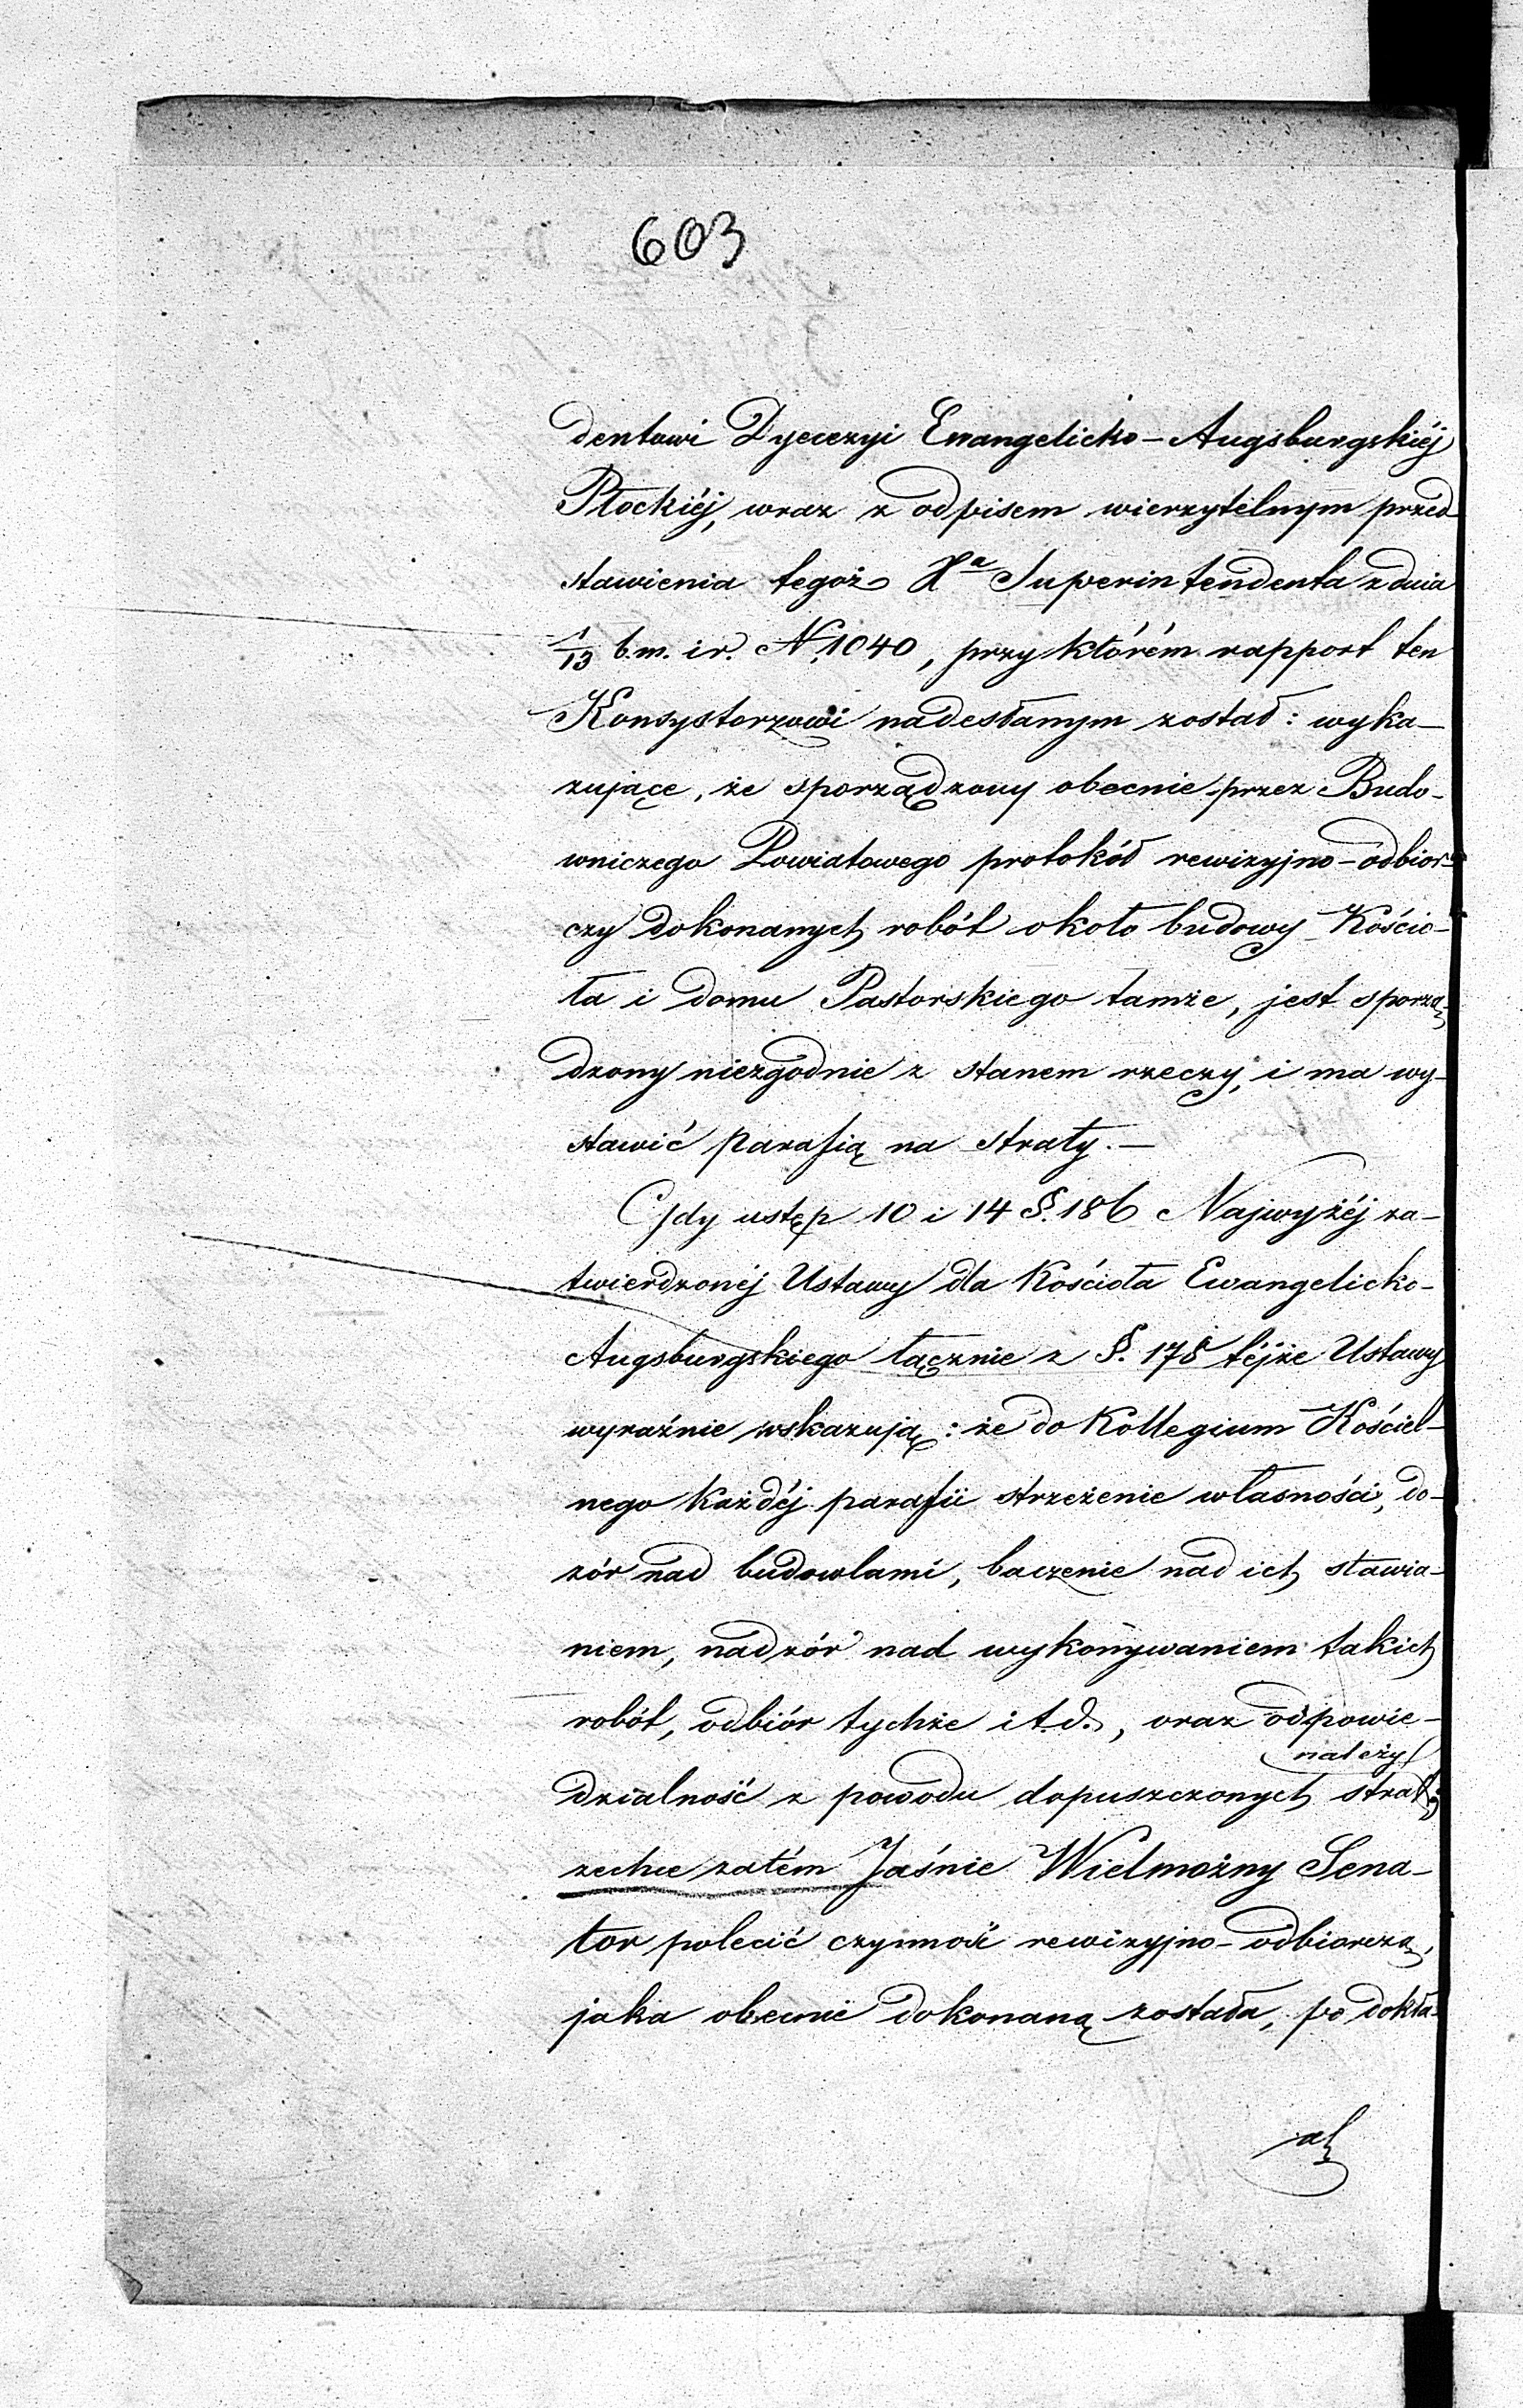 603
dentowi Dyecezyi Ewangelicko-Augsburgskiéj
Płockiéj, wraz z odpisem wierzytelnym przed-
stawienia tegoż Xa Superintendenta z dnia
1/13 b.m. i r. N. 1040, przy którém rapport ten
Konsystorzowi nadesłanym został: wyka-
zujące, że sporządzony obecnie przez Budo-
wniczego Powiatowego protokół rewizyjno-odbior-
czy dokonanych robót około budowy Kościo-
ła i domu Pastorskiego tamże, jest sporzą-
dzony niezgodnie z stanem rzeczy, i ma wy-
stawić parafią na straty.—
Gdy ustęp 10 i 14 §. 186 Najwyżéj za-
twierdzonéj Ustawy dla Kościoła Ewangelicko-
Augsburgskiego łącznie z §. 178 téjże Ustawy
wyraźnie wskazują: że do Kollegium Kościel-
nego każdéj parafii strzeżenie własności, do-
zór nad budowlami, baczenie nad ich stawia-
niem, nadzór nad wykonywaniem takich
robót, odbiór tychże i t.d., oraz odpowie-
należy
dzialność z powodu dopuszczonych strat;
zechce zatém Jaśnie Wielmożny Sena-
tor polecić czynność rewizyjno-odbiorczą,
jaka obecnie dokonaną została, po dokła-